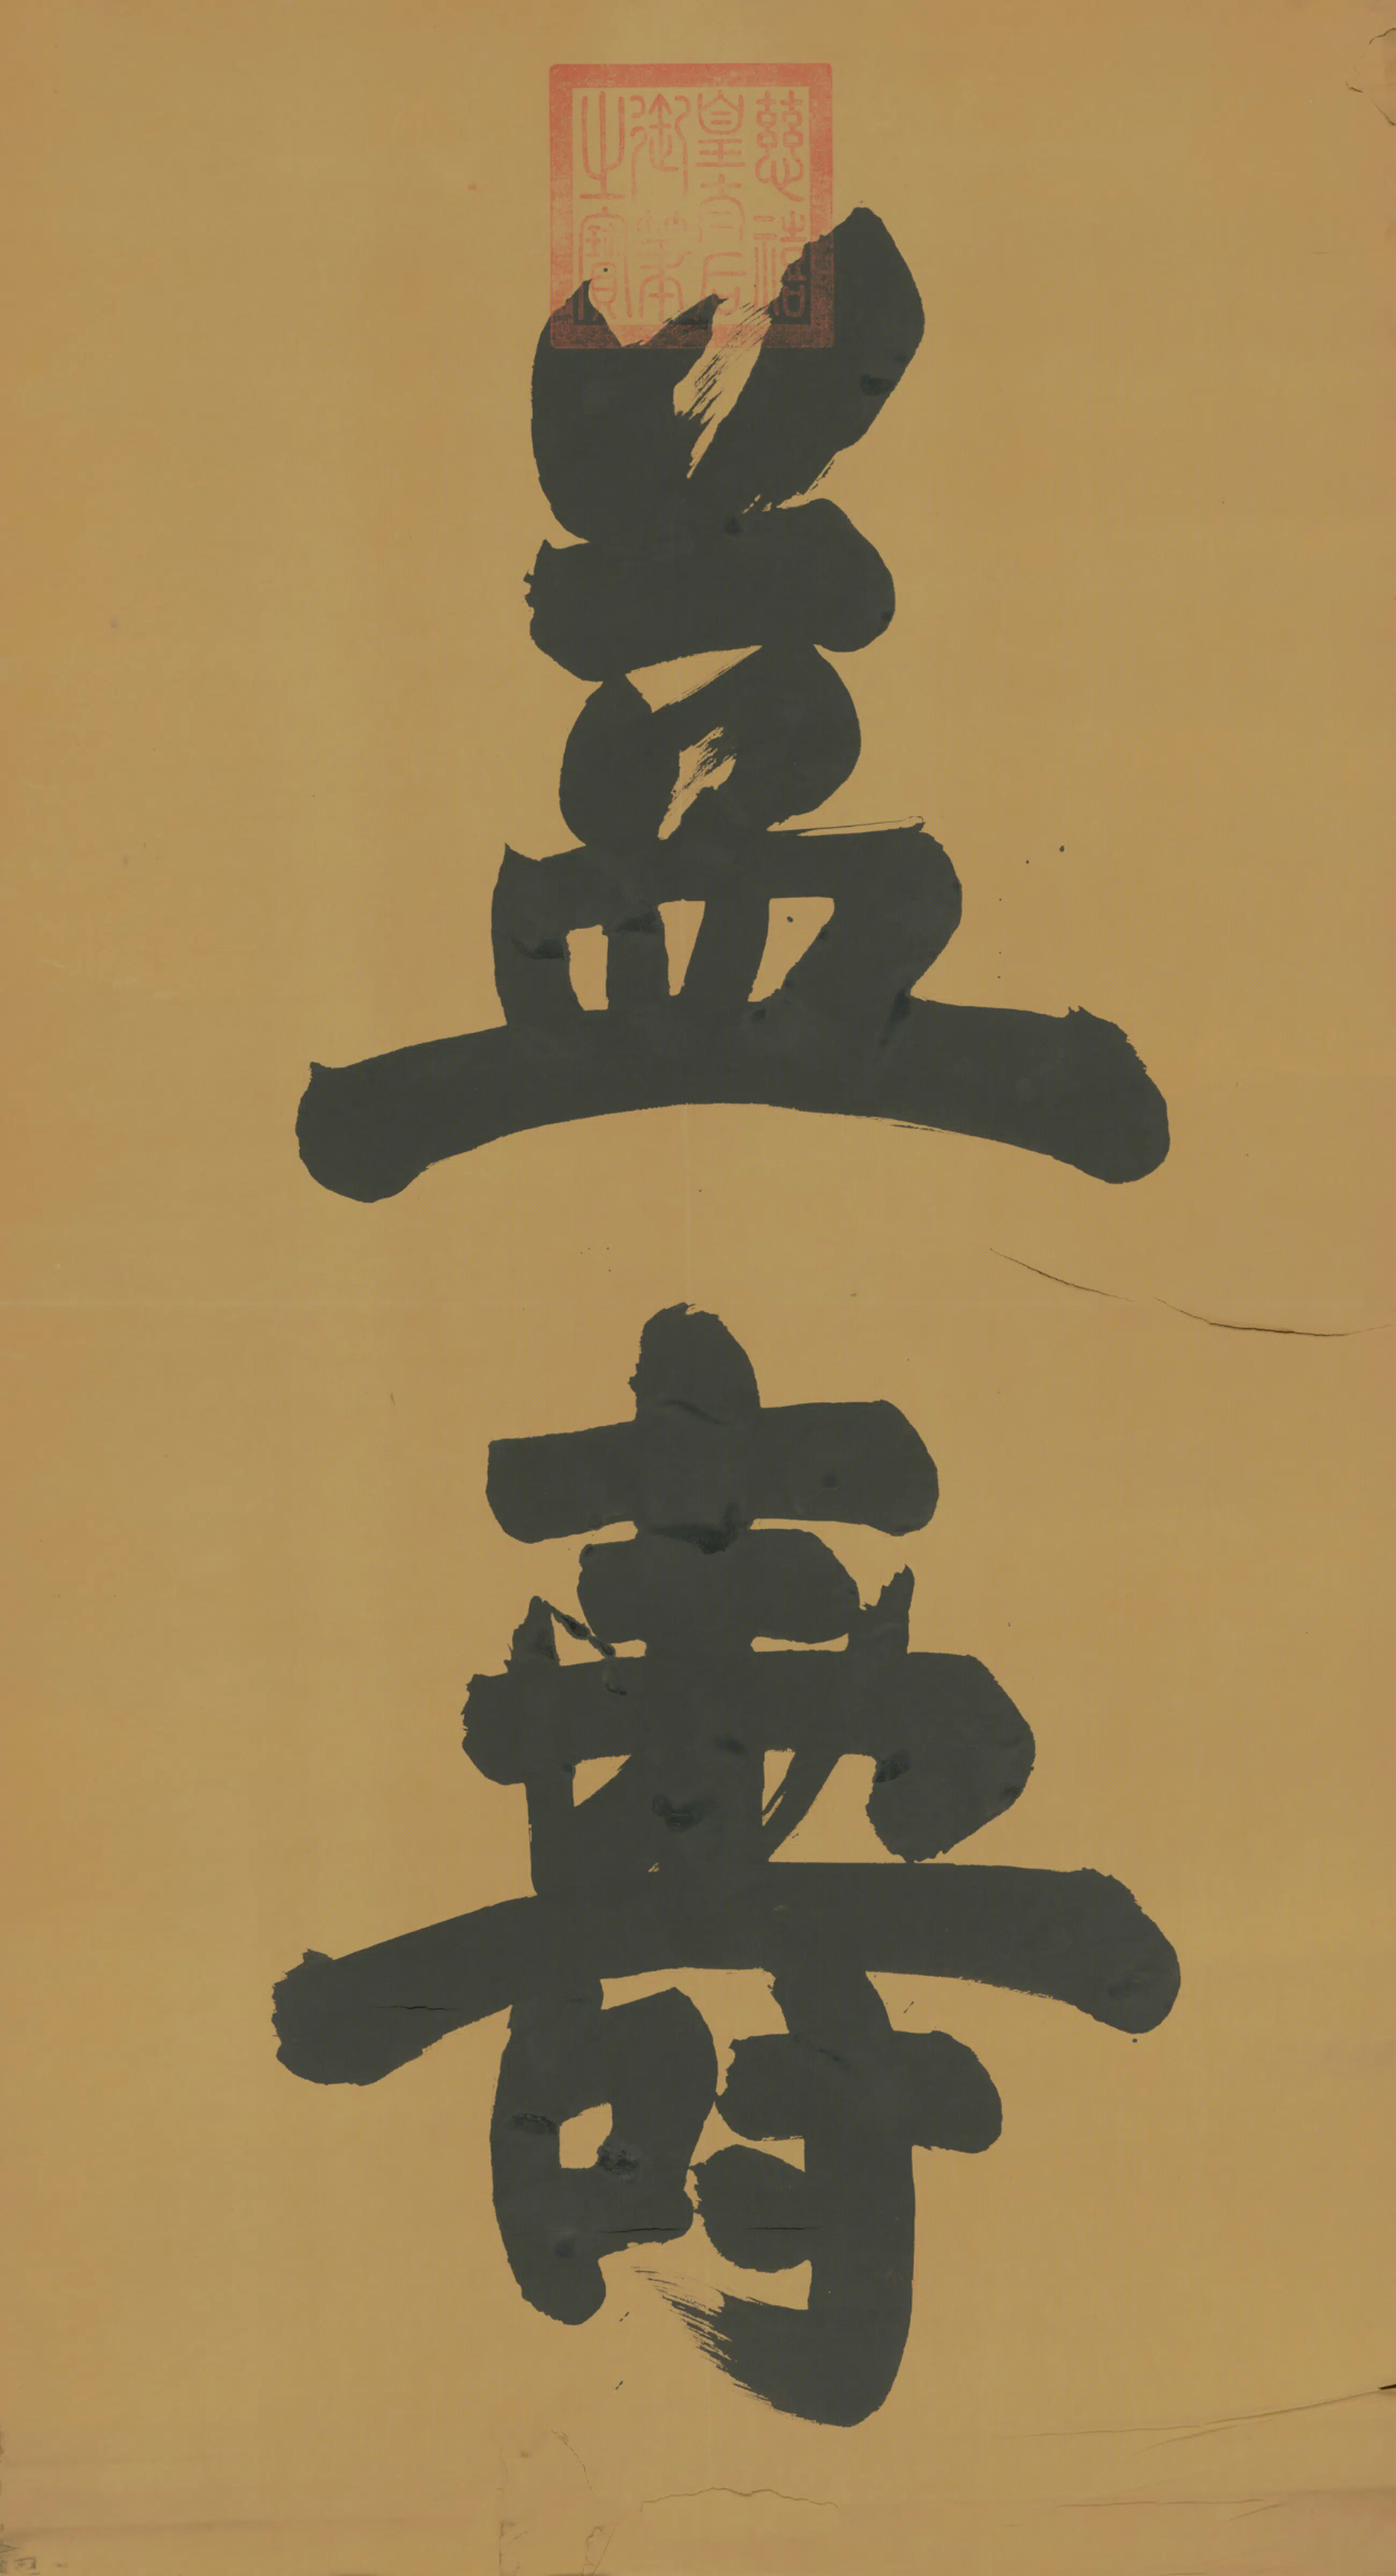 慈禧
皇太后
御筆
之寶
益壽